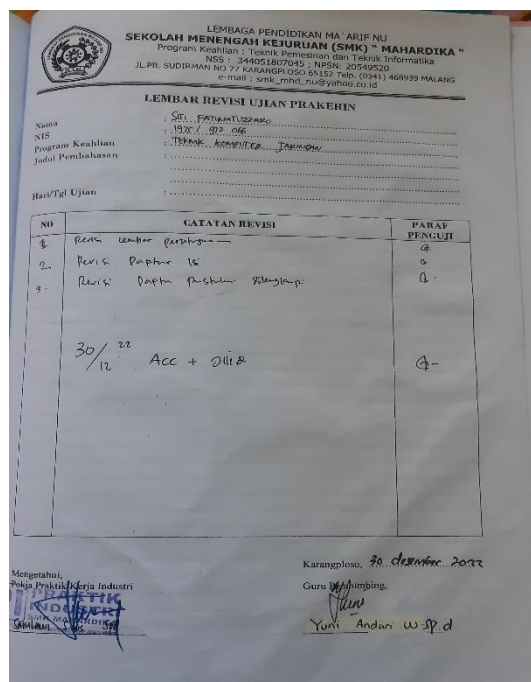 LEMBAGA PENDIDIKAN MA`ARIF NU
SEKOLAH MENENGAH KEJURUAN (SMK) " MAHARDIKA "
Program Keahlian : Teknik Pemesinan dan Teknik Informatika
NSS : 344051807045 ; NPSN: 20549520
JL.PB. SUDIRMAN NO 77 KARANGPLOSO 65152 Telp. (0341) 468939 MALANG
e-mail : smk_mhd_nu@yahoo.co.id
LEMBAR REVISI UJIAN PRAKERIN
Nama : Siti FATIMATUZZARO
NIS : 1925/ 972 066
Program Keahlian : TEKNIK KOMPUTER JARINGAN
Judul Pembahasan :
Hari/Tgl Ujian :
NO CATATAN REVISI PARAF PENGUJI
1. Revisi lembar persetujuan
2. Revisi Daptar Isi
3. Revisi Daptar Pustaka
30/12 22 Acc +
Karangploso, 30 desember 2022
Mengetahui,
Pokja Praktik Kerja Industri
Guru Pembimbing,
PRAKTIK
INDUSTRI
Yuni Andari W.SP.d